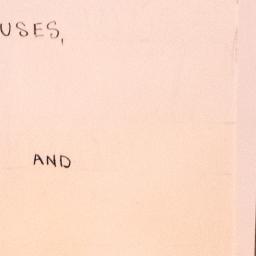 USES,
AND